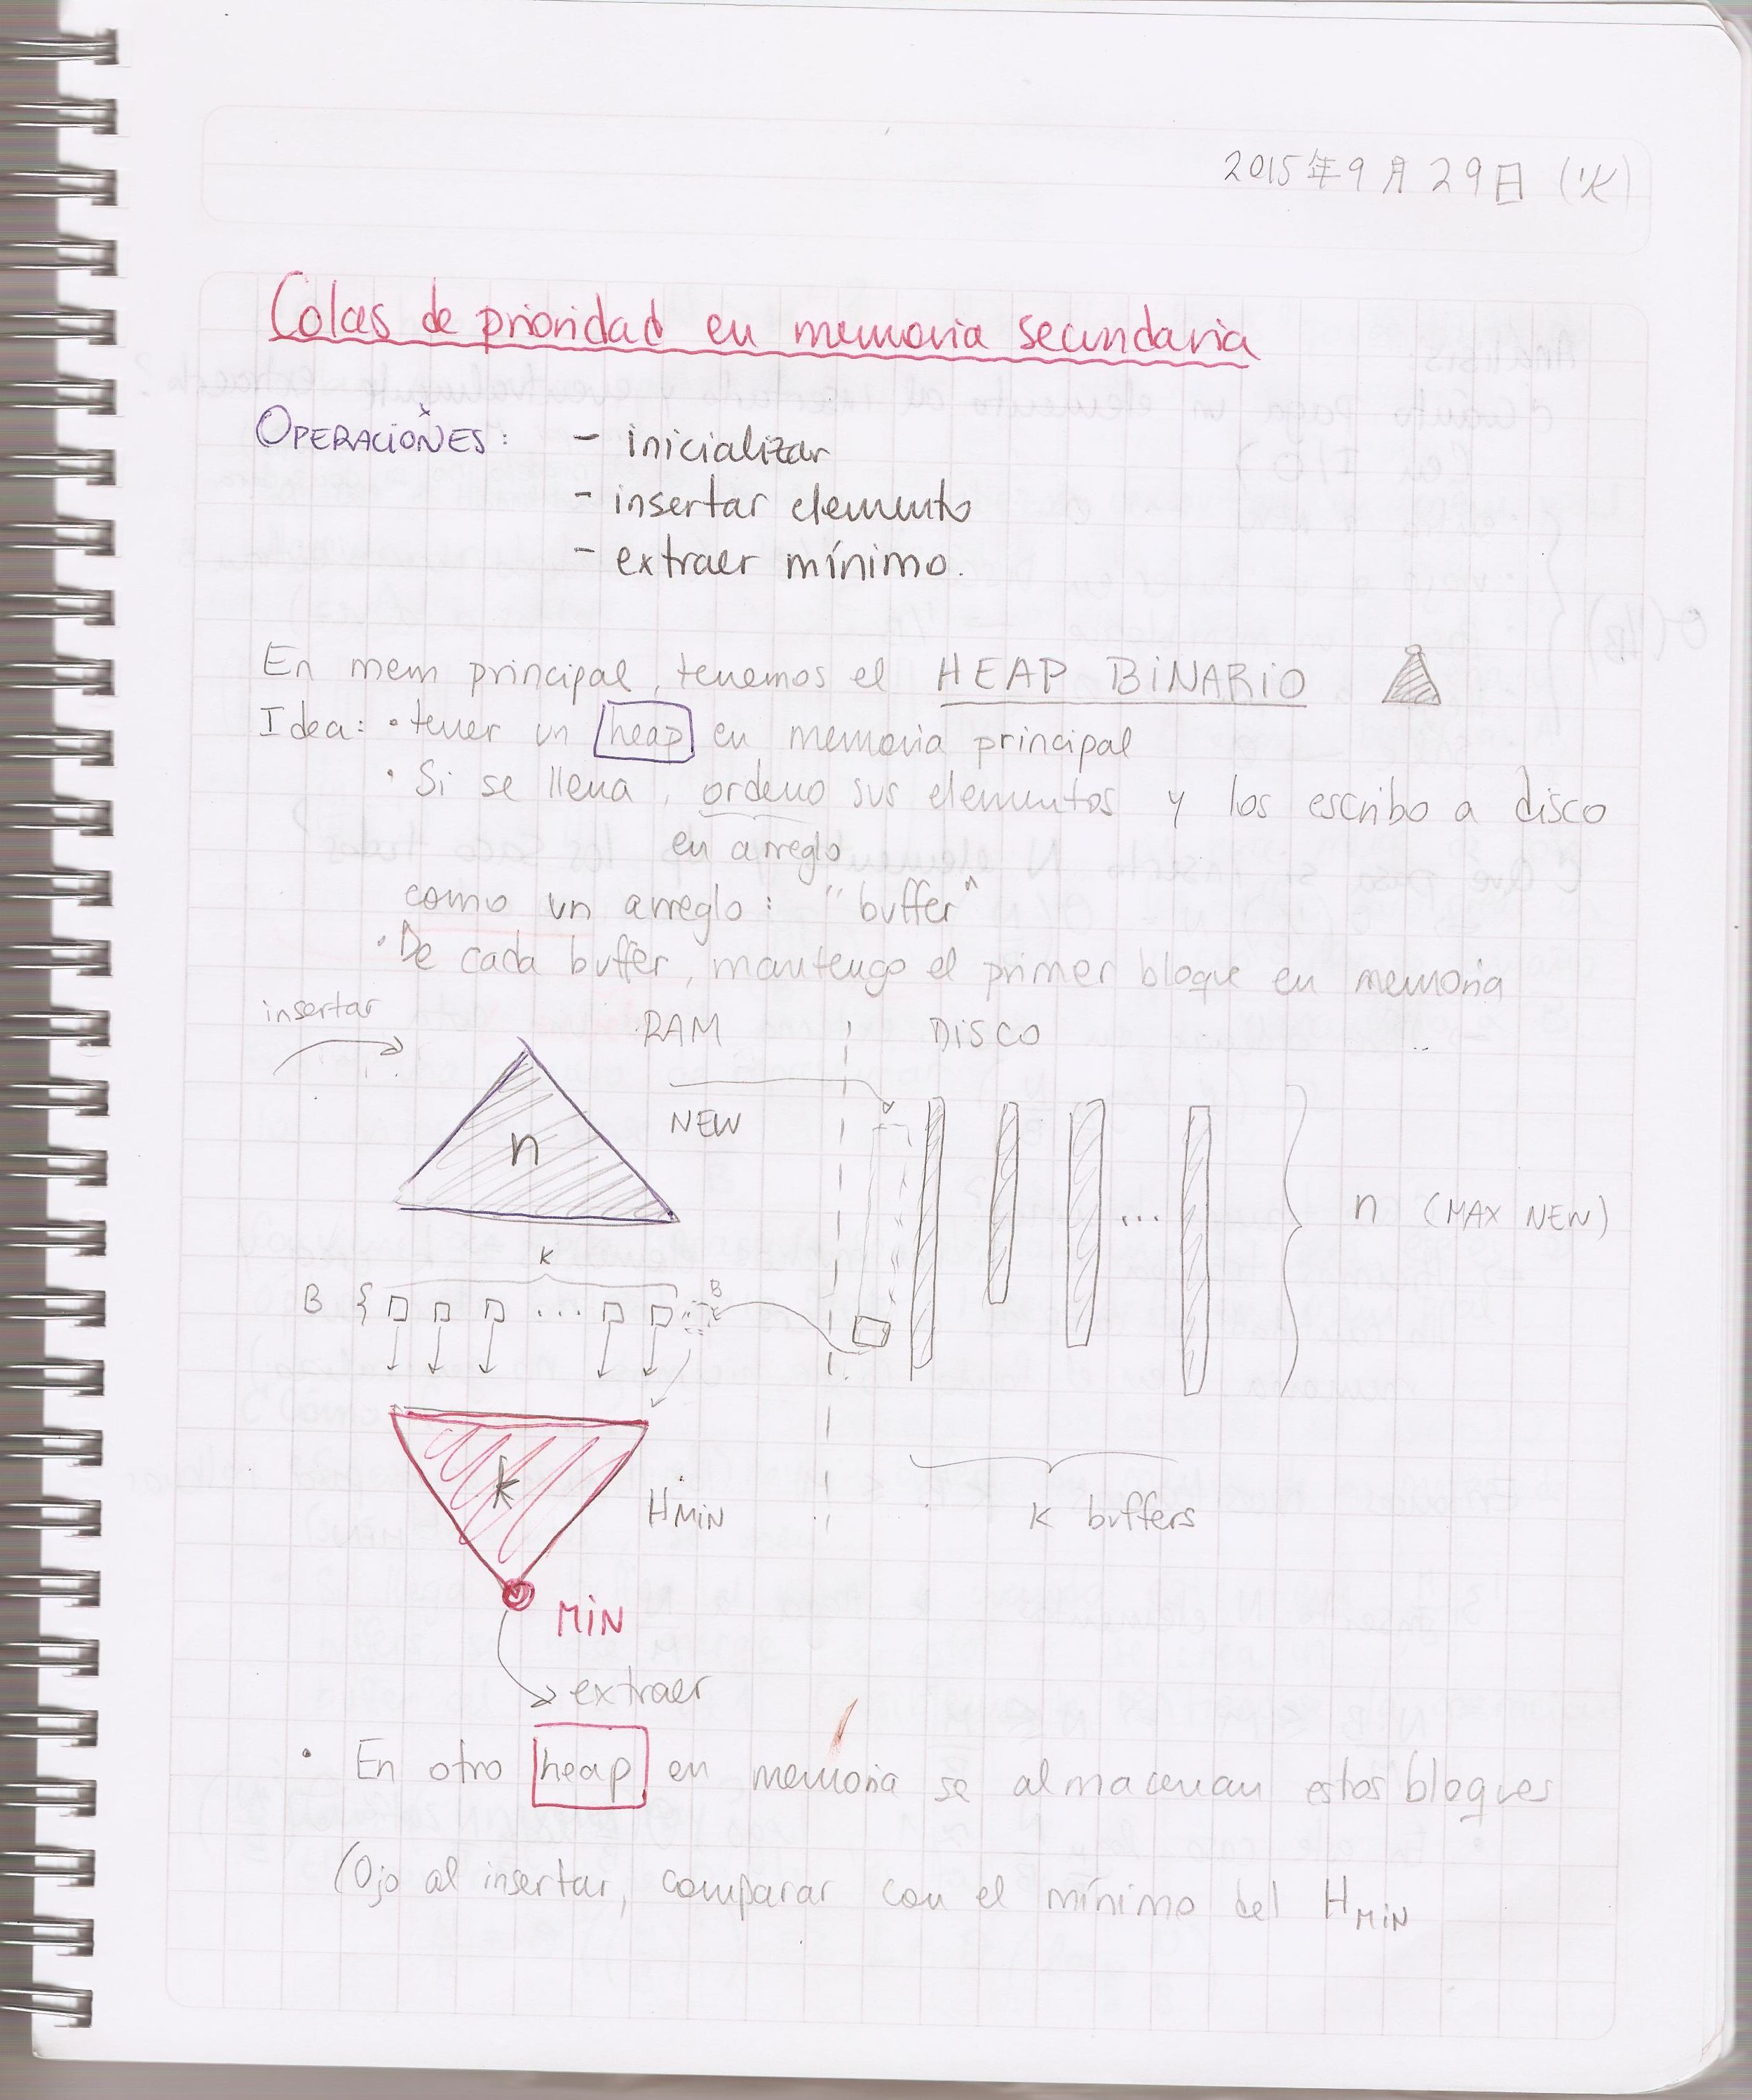 2015年9月29日 (火)
Colas de prioridad en memoria secundaria
OPERACIONES: - inicializar
- insertar elemento
- extraer mínimo.
En mem principal, tenemos el HEAP BINARIO
Idea: • tener un heap en memoria principal
• Si se llena, ordeno sus elementos y los escribo a disco
en arreglo
como un arreglo: "buffer"
• De cada buffer, mantengo el primer bloque en memoria
insertar
RAM DISCO
NEW
n
n (MAX NEW)
k
B { ... B
...
k
HMIN
k buffers
MIN
extraer
• En otro heap en memoria se almacenan estos bloques
(Ojo al insertar, comparar con el mínimo del HMIN